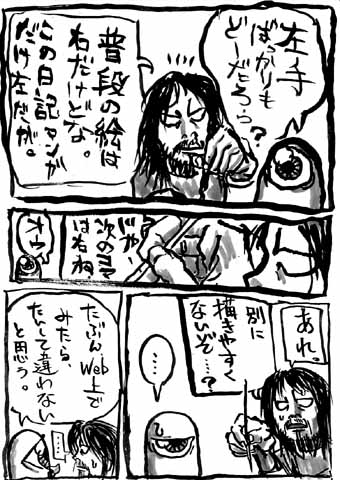 左手
ばっかりも
どーだろう?
普段の絵は
右だけどな。
この日記マンガ
だけ左だが。
じゃ、
次のコマ
は右ね
オウ
あれ。
別に
描きやすく
ないぞ……?
……
たぶん
Web上で
みたら、
たいして違わない
と思う。
……